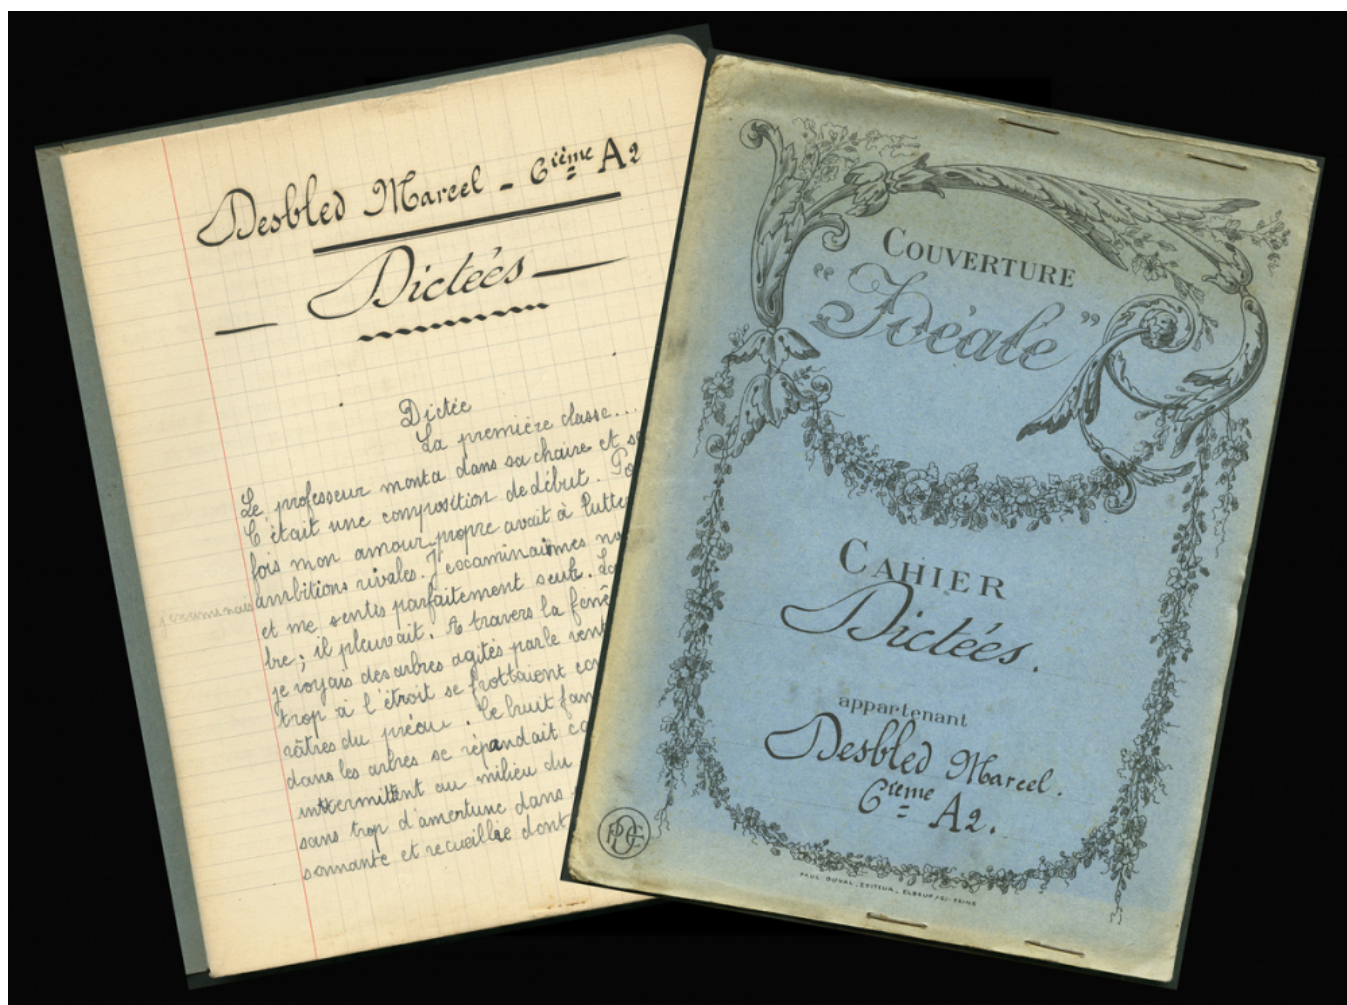 Desbled Marcel - 6ième A2
Dictées
Dictée
La première classe...
Le professeur monta dans sa chaire et
C'était une composition de début.
fois mon amour propre avait à lutte
ambitions rivales. J'examinaimes
j'examinais
et me sentis parfaitement seul.
bre ; il pleuvait. A travers la fenê
je voyais des arbres agités par le vent
trop à l'étroit se frottaient
râtres du préau. Ce bruit
dans les arbres se répandait
intermittent au milieu du
sans trop d'amertume dans
sonnante et recueillie dont
COUVERTURE
"Idéale"
CAHIER
Dictées.
appartenant
Desbled Marcel.
6ième A2.
PAUL DUVAL . EDITEUR . ELBEUF /S/. SEINE